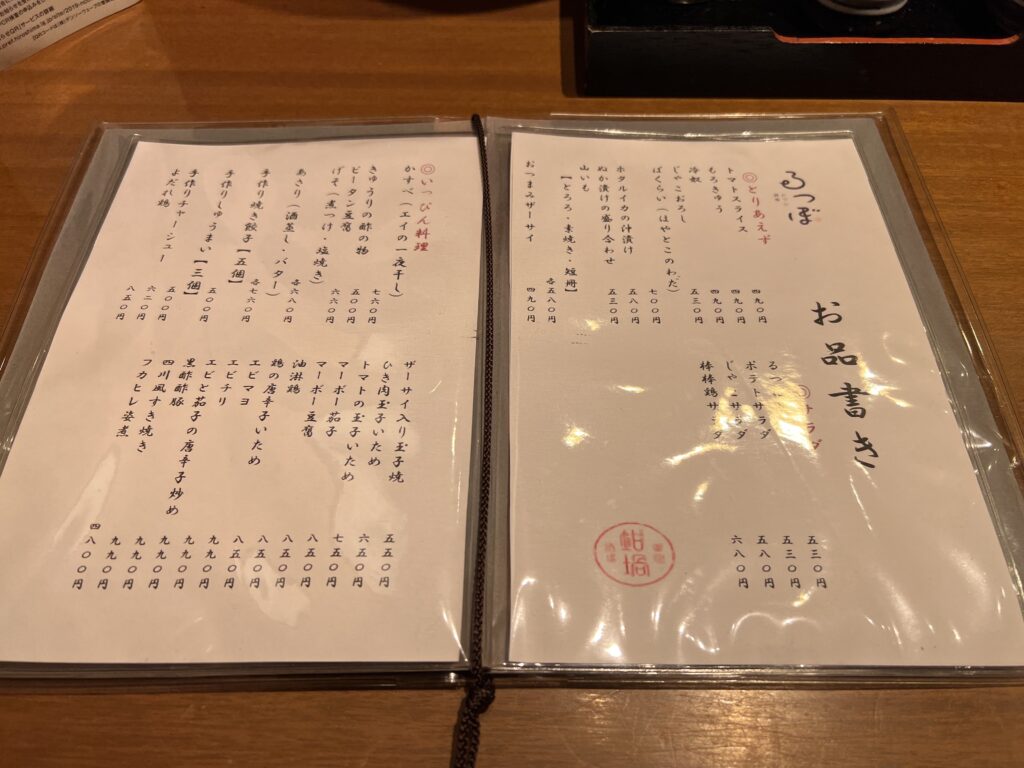 るつぼ
お品書き
◎とりあえず
トマトスライス 四九〇円
もろきゅう 四九〇円
冷奴 四九〇円
じゃこおろし 五三〇円
ばくらい（ほやとこのわた） 七〇〇円
ホタルイカの沖漬け 五八〇円
ぬか漬けの盛り合わせ 五三〇円
山いも
【とろろ・素焼き・短冊】 各五八〇円
おつまみザーサイ 四九〇円
◎サラダ
るつ 五三〇円
ポテトサラダ 五三〇円
じゃこサラダ 五八〇円
棒棒鶏サラダ 六八〇円
坩堝
◎いっぴん料理
かすべ（エイの一夜干し） 七六〇円
きゅうりの酢の物 五〇〇円
ピータン豆腐 六六〇円
げそ（煮つけ・塩焼き） 各六八〇円
あさり（酒蒸し・バター） 各七六〇円
手作り焼き餃子【五個】 五〇〇円
手作りしゅうまい【三個】 五〇〇円
手作りチャーシュー 六二〇円
よだれ鶏 八五〇円
ザーサイ入り玉子焼 五五〇円
ひき肉玉子いため 六五〇円
トマトの玉子いため 七五〇円
マーボー茄子 八五〇円
マーボー豆腐 八五〇円
油淋鶏 八五〇円
鶏の唐辛子いため 八五〇円
エビマヨ 九九〇円
エビチリ 九九〇円
エビと茄子の唐辛子炒め 九九〇円
黒酢酢豚 九九〇円
四川風すき焼き 九九〇円
フカヒレ姿煮 四八〇円